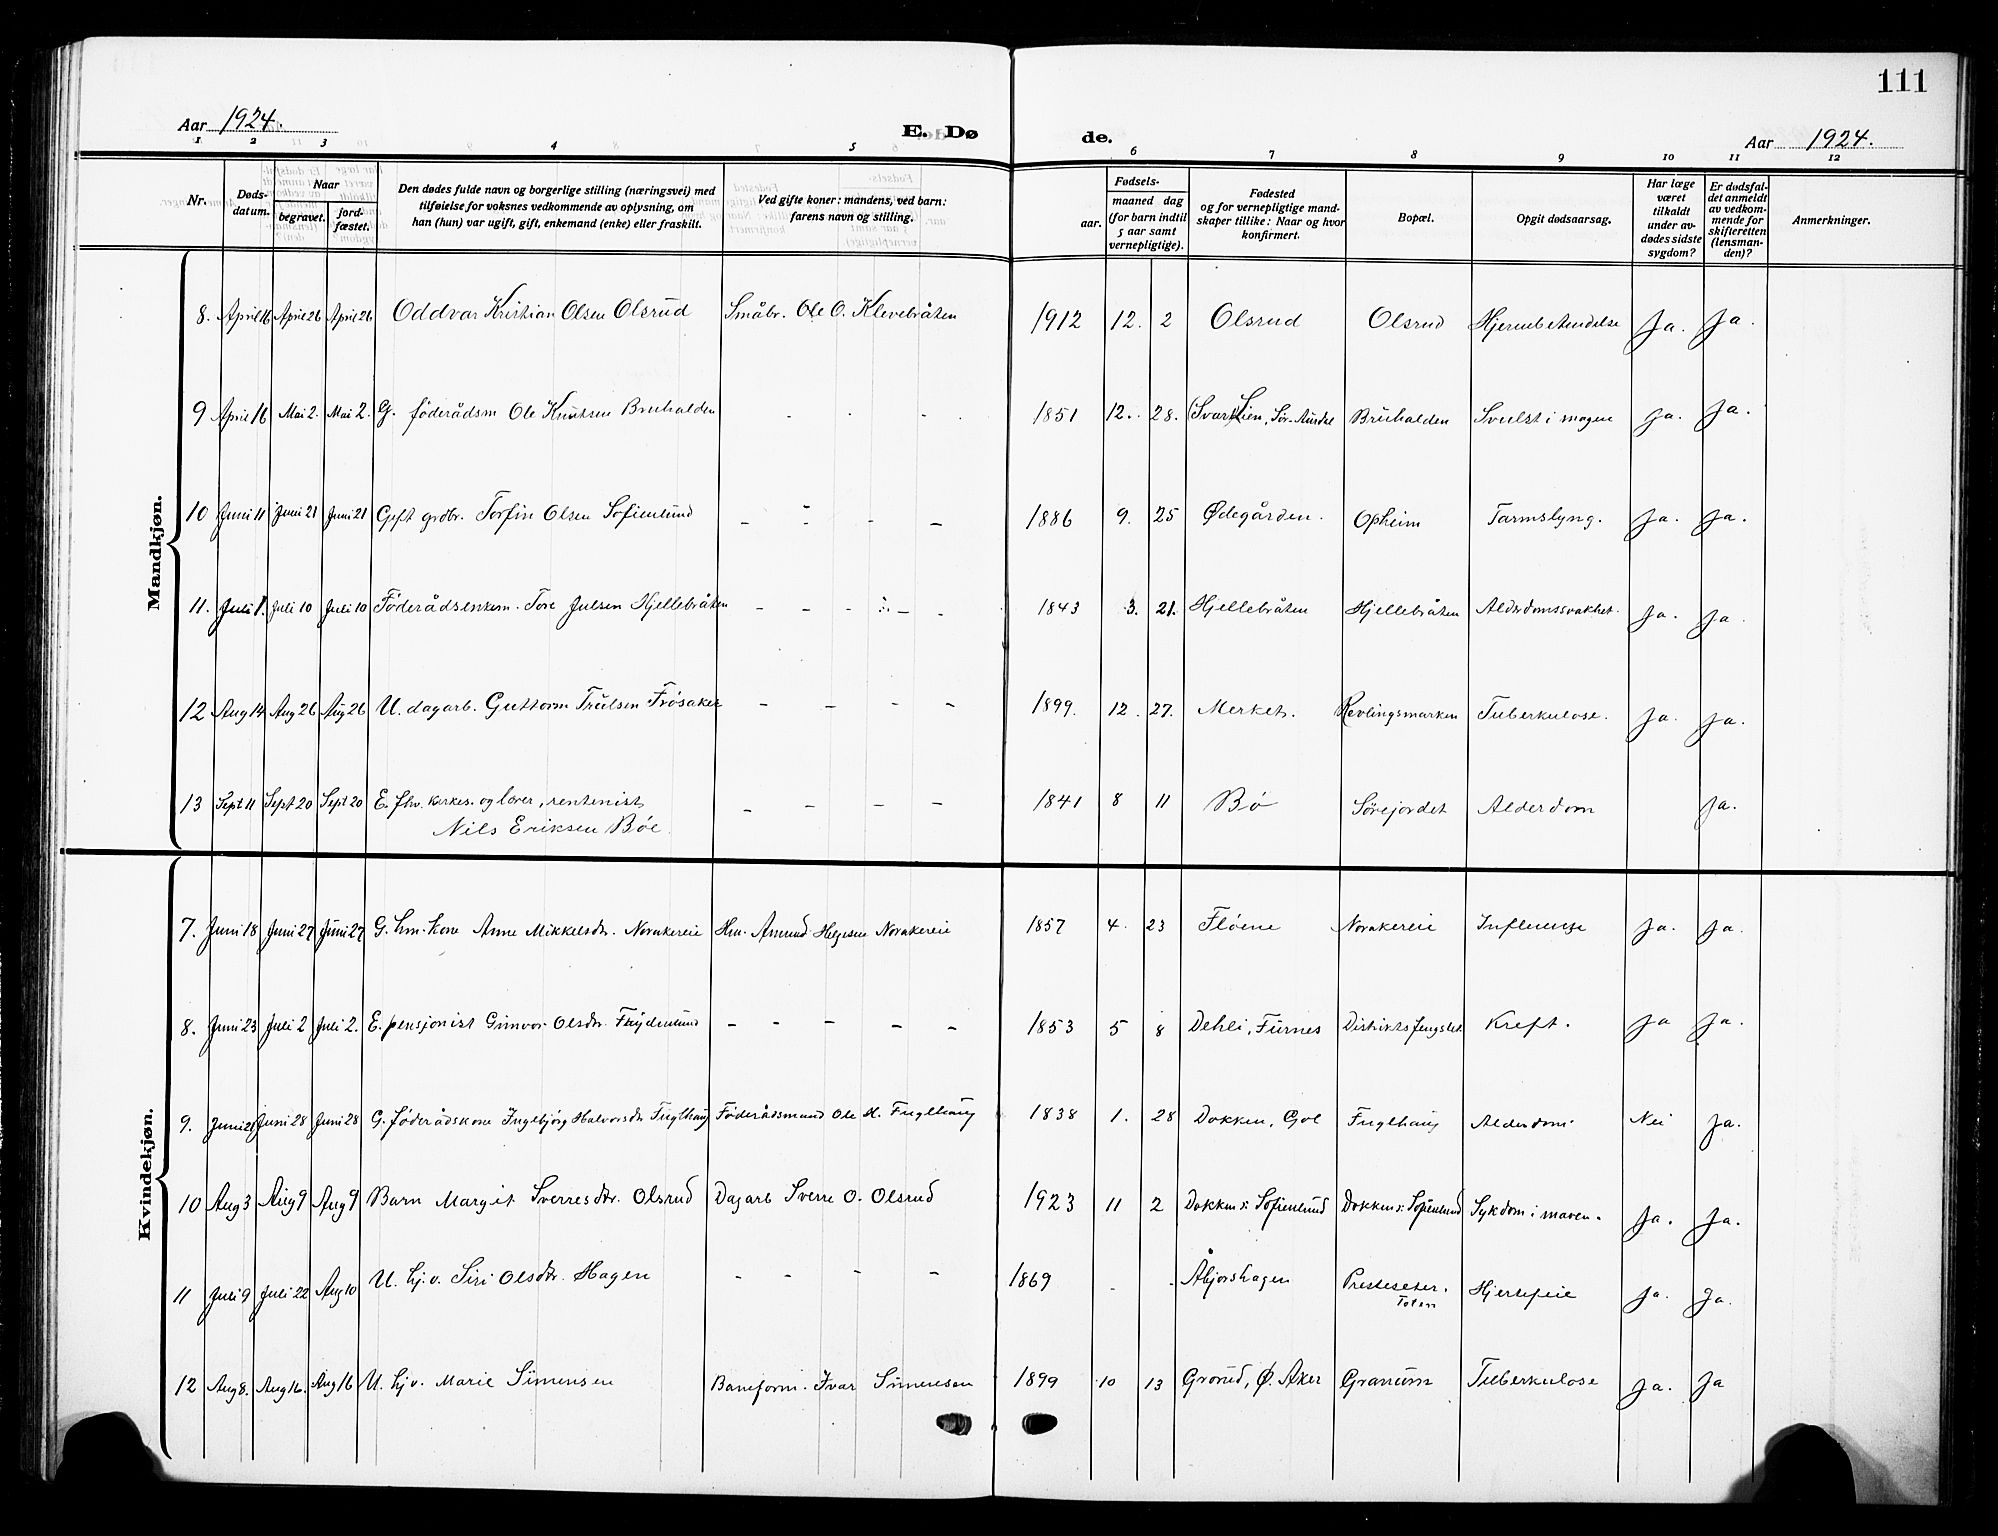 111
Aar 1924.
E. Dø
de.
Aar 1924.
1 2 3 4 5 6 7 8 9 10 11 12
Nr.
Dødsdatum.
Naar
begravet.
jordfæstet.
Den dødes fulde navn og borgerlige stilling (næringsvei) med
tilføielse for voksnes vedkommende av oplysning, om
han (hun) var ugift, gift, enkemand (enke) eller fraskilt.
Ved gifte koner: mandens, ved barn:
farens navn og stilling.
Fødsels-
aar.
maaned dag
(for barn indtil
5 aar samt
vernepligtige).
Fødested
og for vernepligtige mand-
skaper tillike: Naar og hvor
konfirmert.
Bopæl.
Opgit dødsaarsag.
Har læge
været
tilkaldt
under av-
dødes sidste
sygdom?
Er dødsfal-
det anmeldt
av vedkom-
mende for
skifteretten
(lensman-
den)?
Anmerkninger.
Mandkjøn.
8. April 16 April 26 April 26 Oddvar Kristian Olsen Olsrud Småbr. Ole O. Klevebråten 1912 12. 2 Olsrud Olsrud Ja. Ja.
9 April 16 Mai 2. Mai 2. G. föderådsm Ole Knutsen Bruhalden - - - 1851 12. 28. Bruhalden Svulst i magen Ja. Ja.
10 Juni 11 Juni 21 Juni 21 Gift grdbr. Torfin Olsen Sofienlund - - - - 1886 9. 25 Ødegården. Opheim Tarmslyng. Ja. Ja.
11. Juli 1. Juli 10 Juli 10 Föderådsenkem. Tore Julsen Hjellebråten - - - - - 1843 3. 21. Hjellebråten Hjellebråten Alderdomssvakhet. Ja. Ja.
12 Aug 14 Aug 26 Aug 26 U. dagarb. Guttorm Trulsen Frösaker - - - - 1899. 12. 27. Merket. Revlingsmarken Tuberkulose. Ja. Ja.
13 Sept 11 Sept 20 Sept 20 E. fhv. kirkes. og lærer, rentenist - - - - 1841 8 11 Bö Sörejordet Alderdom Ja.
Nils Eriksen Böe.
Kvindekjøn.
7. Juni 18 Juni 27 Juni 27 G. hm. kone Anne Mikkelsdtr. Norakereie Hm. Amund Helgesen Norakereie 1857 4. 23 Flöene Norakereie Influensa Ja. Ja.
8. Juni 23 Juli 2 Juli 2. E. pensjonist Gunvor Olsdtr. Frydenlund - - - - - 1853 5 8 Dehli, Furnes Kreft. Ja Ja.
9. Juni 28 Juni 28 G. föderådskone Ingebjörg Halvorsdtr Fuglhaug Föderådsmand Ole H. Fuglhaug 1838 1. 28 Dokken, Gol Fuglhaug Alderdom. Nei Ja.
10 Aug 3 Aug 9 Aug 9 Barn Margit Sverresdtr. Olsrud Dagarb Sverre O. Olsrud 1923 11 2 Dokken s: Sofienlund Dokken s: Sofienlund Sykdom i maven. Ja. Ja.
11 Juli 9 Juli 22 Aug 10 U. hj.v. Siri Olsdtr. Hagen - - - - 1869 - - Åbjorshagen Presteseter. Hjertefeil Ja. Ja.
Toten
12 Aug 8. Aug 16. Aug 16 U. hj v. Marie Simensen Baneform. Ivar Simensen 1899 10 13 Grorud, Ø. Aker Granum Tuberkulose Ja. Ja